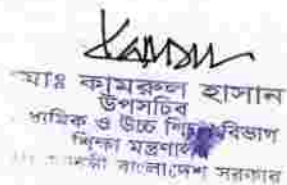 মোঃ কামরুল হাসান
উপসচিব
মাধ্যমিক ও উচ্চ শিক্ষা বিভাগ
শিক্ষা মন্ত্রণালয়
বাংলাদেশ সরকার